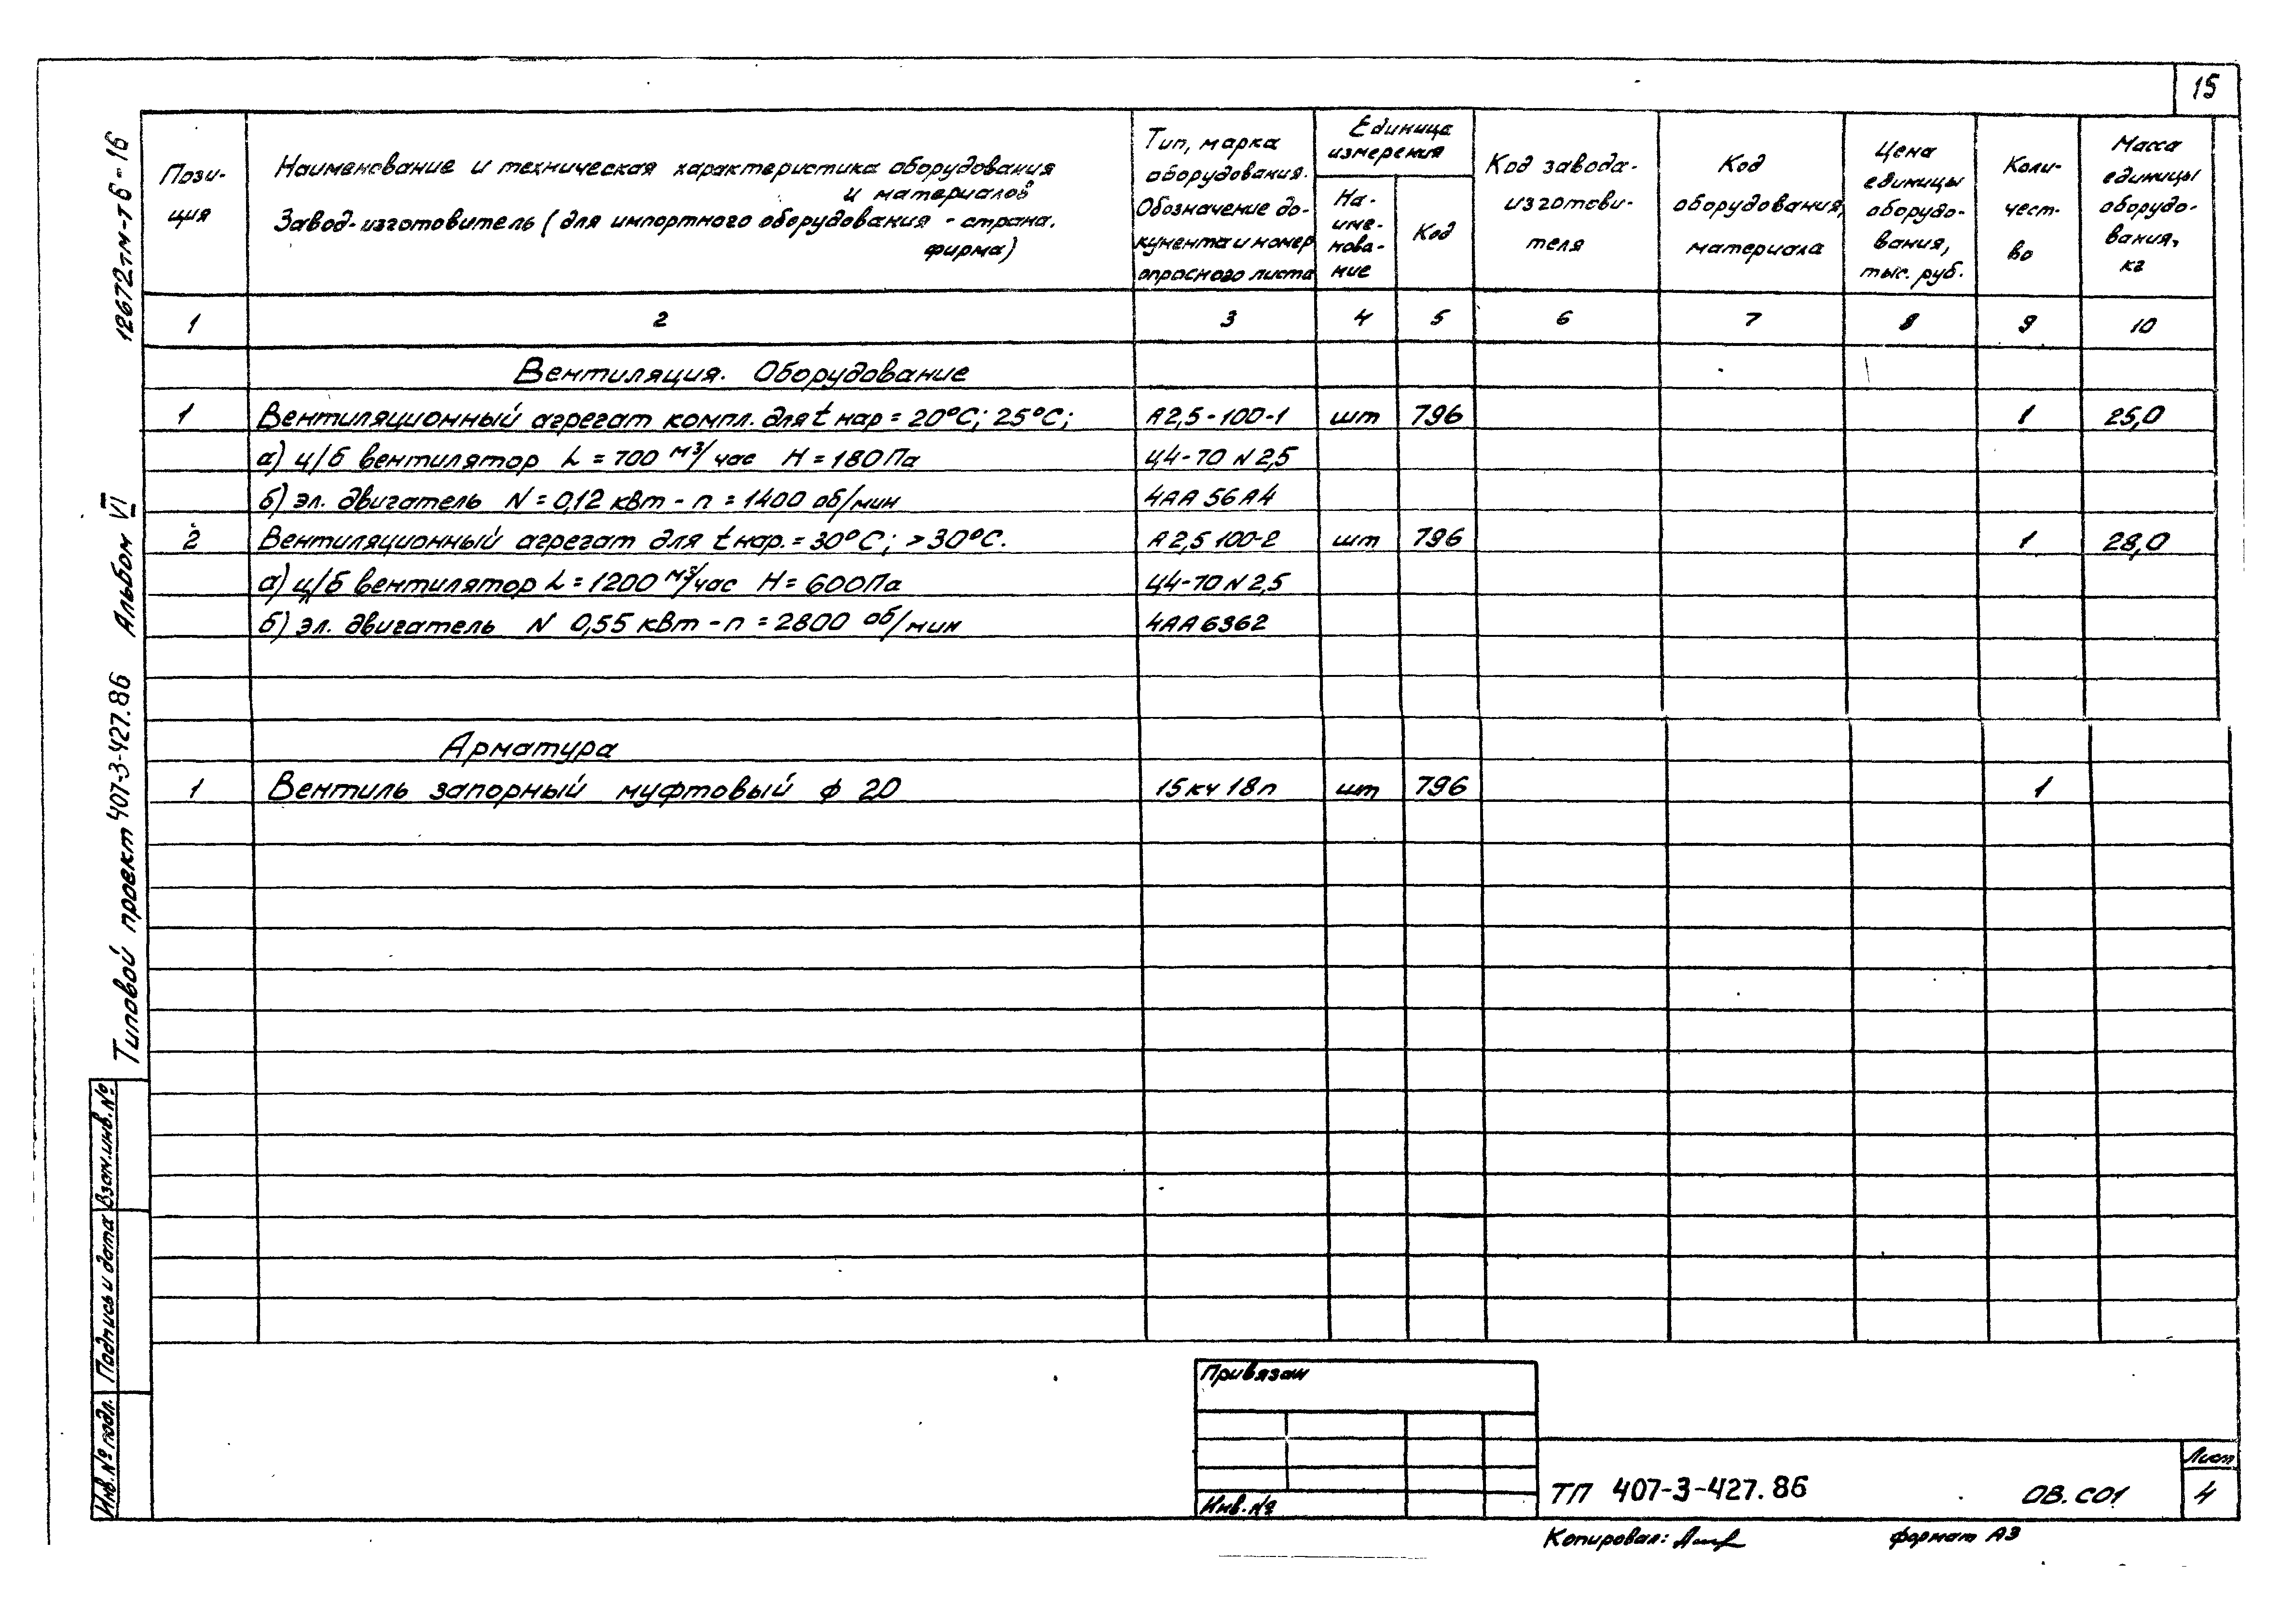 15
12672тм-т6-16
Альбом VI
Типовой проект 407-3-427.86
Взам.инв.№
Подпись и дата
Инв.№ подл.
Пози-
ция
Наименование и техническая характеристика оборудования
и материалов
Завод-изготовитель (для импортного оборудования - страна,
фирма)
Тип, марка
оборудования.
Обозначение до-
кумента и номер
опросного листа
Единица
измерения
На-
име-
нова-
ние
Код
Код завода-
изготови-
теля
Код
оборудования,
материала
Цена
единицы
оборудо-
вания,
тыс. руб.
Коли-
чест-
во
Масса
единицы
оборудо-
вания,
кг
1 2 3 4 5 6 7 8 9 10
Вентиляция. Оборудование
1 Вентиляционный агрегат компл. для t нар = 20°С; 25°С; А2,5-100-1 шт 796 1 25,0
а) ц/б вентилятор L = 700 м³/час H = 180 Па Ц4-70 N 2,5
б) эл. двигатель N = 0,12 квт - n = 1400 об/мин 4АА 56 А4
2 Вентиляционный агрегат для t нар. = 30°С; >30°С. А 2,5 100-2 шт 796 1 28,0
а) ц/б вентилятор L = 1200 м³/час H = 600 Па Ц4-70 N 2,5
б) эл. двигатель N 0,55 квт - n = 2800 об/мин 4АА6362
Арматура
1 Вентиль запорный муфтовый ф 20 15 кч 18п шт 796 1
Привязан
Инв.№
ТП 407-3-427.86 ОВ.СО1
Лист
4
Копировал: формат А3